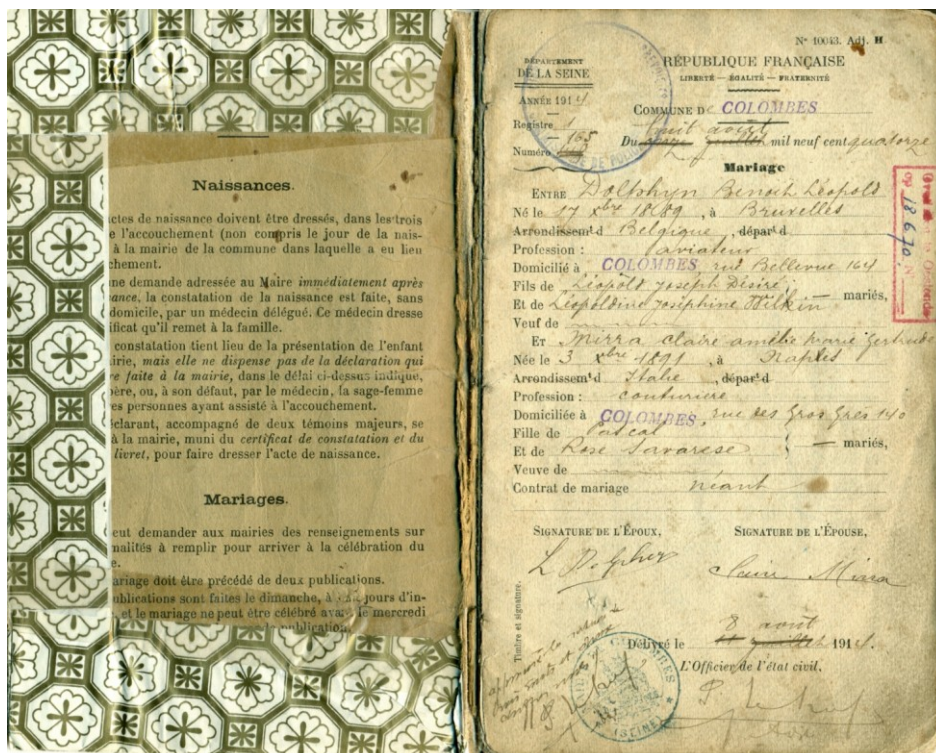 Naissances.
actes de naissance doivent être dressés, dans les trois
e l'accouchement (non compris le jour de la nais-
à la mairie de la commune dans laquelle a eu lieu
chement.
ne demande adressée au Maire immédiatement après
sance, la constatation de la naissance est faite, sans
domicile, par un médecin délégué. Ce médecin dresse
ificat qu'il remet à la famille.
constatation tient lieu de la présentation de l'enfant
irie, mais elle ne dispense pas de la déclaration qui
re faite à la mairie, dans le délai ci-dessus indiqué,
père, ou, à son défaut, par le médecin, la sage-femme
es personnes ayant assisté à l'accouchement.
éclarant, accompagné de deux témoins majeurs, se
à la mairie, muni du certificat de constatation et du
livret, pour faire dresser l'acte de naissance.
Mariages.
eut demander aux mairies des renseignements sur
malités à remplir pour arriver à la célébration du
e.
ariage doit être précédé de deux publications.
ublications sont faites le dimanche, à jours d'in-
et le mariage ne peut être célébré avant le mercredi
publication.
N° 10043. Adj. H
DÉPARTEMENT
DE LA SEINE
RÉPUBLIQUE FRANÇAISE
LIBERTÉ — ÉGALITÉ — FRATERNITÉ
ANNÉE 1914
COMMUNE De COLOMBES
Registre 1
huit août
165
Numéro
Du onze juillet mil neuf cent quatorze
Mariage
ENTRE Dolphyn Benoit Léopold
Né le 17 xbre 1889, à Bruxelles
Arrondissemt d Belgique, départ d
Profession : aviateur
Domicilié à COLOMBES rue Bellevue 164
Fils de Léopold Joseph Désiré
Et de Léopoldine Joséphine Wilkin — mariés,
Veuf de
ET Mirra Claire amélie marie Gertrude
Née le 3 xbre 1891, à Naples
Arrondissemt d Italie, départ d
Profession : couturière
Domiciliée à COLOMBES rue des Gros Grès 140
Fille de Pascal
Et de Rose Savarese } — mariés,
Veuve de
Contrat de mariage néant
SIGNATURE DE L'ÉPOUX, SIGNATURE DE L'ÉPOUSE,
Claire Mirra
Timbre et signature.
8 août
Délivré le 11 juillet 1914
L'Officier de l'état civil,
18670